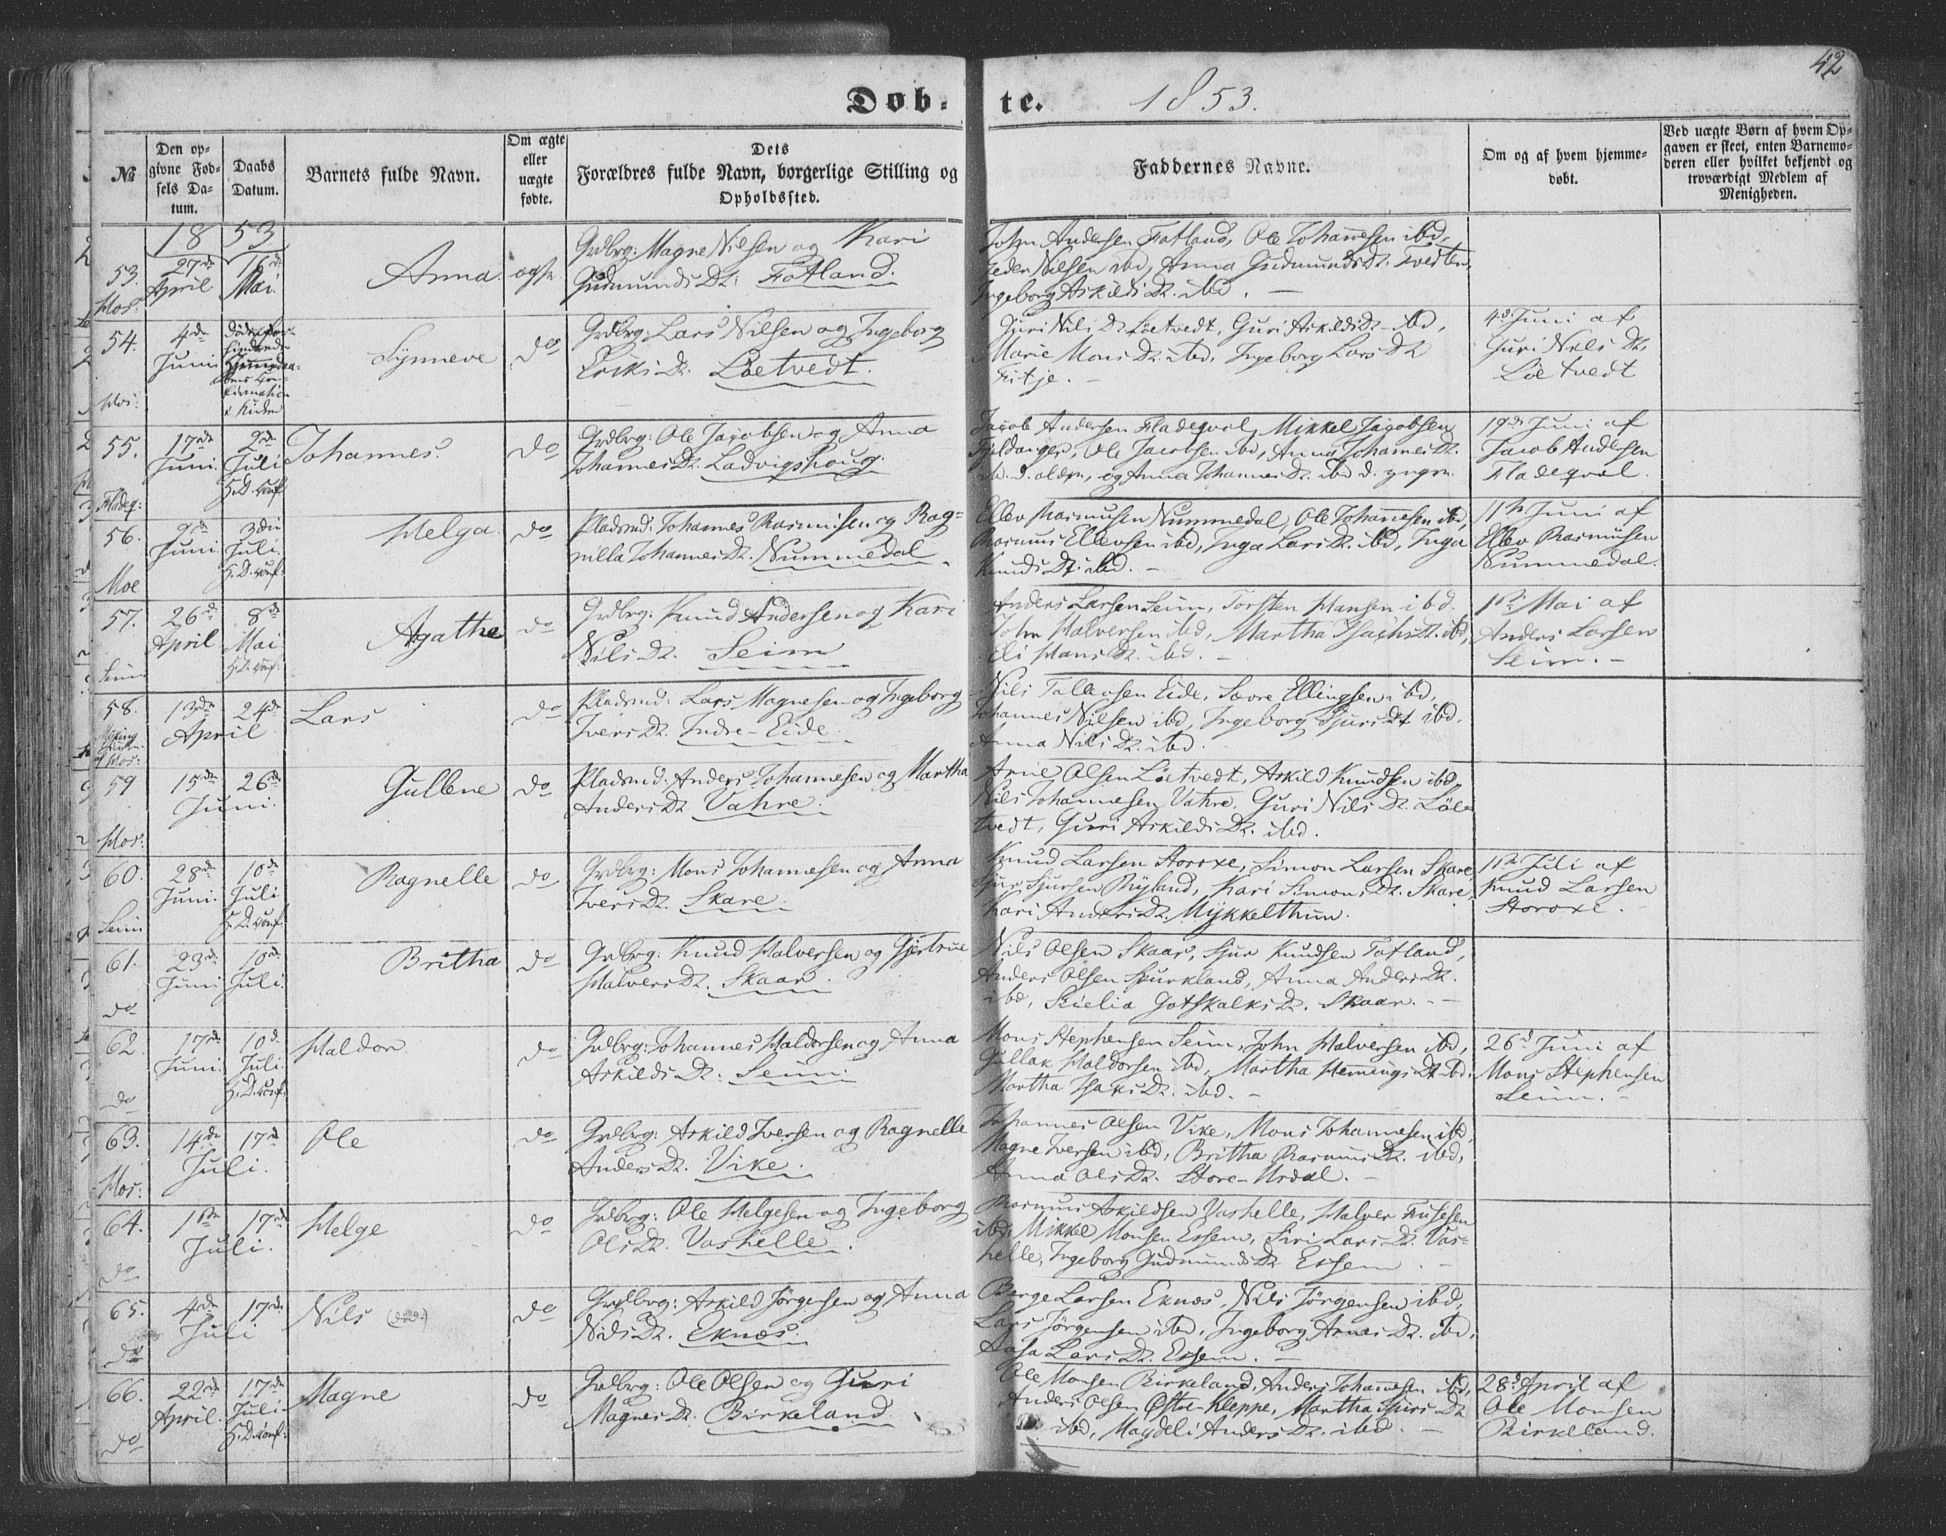 42
Døb- te. 1853.
№
Den opgivne Fødsels Datum.
Daabs Datum.
Barnets fulde Navn.
Om ægte eller uægte fødte.
Dets Forældres fulde Navn, borgerlige Stilling og Opholdssted.
Faddernes Navne.
Om og af hvem hjemmedøbt.
Ved uægte Børn af hvem Opgaven er skeet, enten Barnemoderen eller hvilket bekjendt og troværdigt Medlem af Menigheden.
1853
53.
Hos:
27de April
16de Mai
Anna
ægte
Grdbrg: Magne Nilsen og Kari
Gudmunds Dr: Fotland.
John Andersen Fotland, Ole Johannesen ibd,
Peder Nilsen ibd, Anna Gudmunds Dr. Tvedten,
Ingeborg Askilds Dr. ibd. —
54.
Hos:
4de Juni
Synneve
do
Grdbrg: Lars Nilsen og Ingeborg
Eriks Dr. Løetvedt.
Guri Nils Dr Løetvedt, Guri Askilds Dr. ibd,
Marie Mons Dr. ibd, Ingeborg Lars Dr
Fitje. —
4de Juni af
Guri Nils Dr.
Löetvedt
55.
Fladeq:
17de Juni
2de Juli
H. D. Konf.
Johannes
do
Grdbrg: Ole Jacobsen og Anna
Johannes Dr. Ladvigshoug.
Jacob Andersen Fladeqval, Mikkel Jacobsen
Ole Jacobsen ibd, Anna Johannes Dr.
ibd. d. ældre, og Anna Johannes Dr. ibd d. yngre.
19de Juni af
Jacob Andersen
Fladeqval.
56.
Moe
9de Juni
3die Juli
H. D. Konf:
Helga
do
Pladsmd: Johannes Rasmusen og Rag-
nilla Johannes Dr. Nummedal.
Ellev Rasmusen Nummedal, Ole Johannesen ibd,
Rasmus Ellevsen ibd, Inga Lars Dr. ibd, Inga
Knuds Dr. ibd. —
11te Juni af
Ellev Rasmusen
Nummedal.
57.
Seim
26de April
8de Mai
H. D. Konf:
Agatha
do
Grdbrg: Knud Andersen og Kari
Nils Dr. Seim
Anders Larsen Seim, Torsten Hansen ibd.
John Halversen ibd, Martha Isachs Dr. ibd,
Eli Hans Dr. ibd. —
1ste Mai af
Anders Larsen
Seim. —
58.
Hos:
13de 24de
April
Lars
do
Pladsmd: Lars Magnesen og Ingeborg
Ivers Dr. Indre-Eide.
Nils Tollevsen Eide, Sævre Ellingsen ibd,
Johannes Nilsen ibd, Ingeborg Sjurs Dr ibd.
Anna Nils Dr. ibd.
59
Hos:
15de 26de
Juni
Gullene
do
Pladsmd: Anders Johannesen og Martha
Anders Dr Vahre.
Arne Olsen Löetvedt, Askild Knudsen ibd,
Nils Johannesen Vahre, Guri Nils Dr. Löe-
tvedt, Guri Askilds Dr. ibd.
60.
Seim
28de Juni
10de Juli
H. D. Konf
Ragnelle
do
Grdbrg: Mons Johannesen og Anna
Ivers Dr. Skare.
Knud Larsen Storoxe, Simon Larsen Skare
Sjur Sjursen Ryland, Kari Simons Dr. Skare,
Kari Anders Dr. Mykkelthun.
11te Juli af
Knud Larsen
Storoxe. —
61.
do
23de Juni
10de Juli.
Britha
do
Grdbrg: Knud Halversen og Gjertrue
Halvers Dr. Skaar.
Nils Olsen Skaar, Sjur Knudsen Fotland,
Anders Olsen Spurkland, Anna Anders Dr.
ibd, Gotskalks Dr. Skaar. —
62.
do
17de Juni
10de Juli
H. D. Konf:
Haldor
do
Grdbrg: Johannes Haldorsen og Anna
Askilds Dr: Seim.
Mons Stephensen Seim, John Halversen ibd,
Gullak Haldorsen ibd, Martha Hemings Dr ibd.
Martha Isaks Dr. ibd. —
26de Juni af
Mons Stephensen
Seim. —
63.
Hos:
14de 17de
Juli.
Ole
do
Grdbrg: Askild Iversen og Ragnelle
Anders Dr. Vike.
Johannes Olsen Vike, Mons Johannesen ibd,
Magne Iversen ibd, Britha Rasmus Dr. ibd,
Anna Ols Dr. Store-Urdal. —
64.
do
1ste 17de
Juli.
Helge
do
Grdbrg: Ole Helgesen og Ingeborg
Ols Dr. Vashelle.
Rasmus Askildsen Vashelle, Halver
ibd, Mikkel Monsen Essem, Siri Lars Dr. Vas-
helle, Ingeborg Gudmunds Dr Essem. —
65.
do
4de 17de
Juli
Nils (død)
do
Grdbrg: Askild Jörgensen og Anna
Nils Dr. Eknæs.
Børge Larsen Eknæs, Nils Jörgensen ibd,
Lars Jörgensen ibd, Ingeborg Arnes Dr. ibd,
Aasa Lars Dr. Essem. —
66.
do
22de April.
17de Juli
H. D. Konf:
Magne
do
Grdbrg: Ole Olsen og Guri
Magnes Dr. Birkeland.
Ole Monsen Birkeland, Anders Johannesen ibd,
Anders Olsen Østre-Kleppe, Martha Sjurs Dr
ibd, Magdeli Anders Dr. ibd. —
28de April af
Ole Monsen
Birkeland.